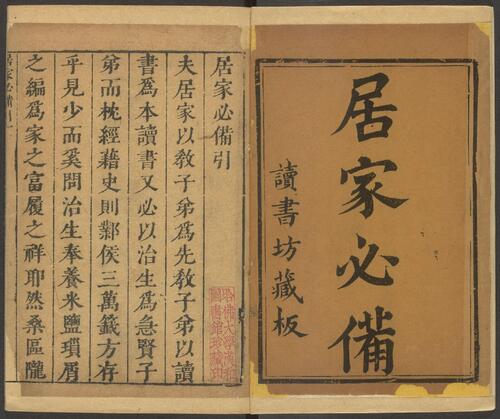 居家必備
讀書坊藏板
居家必備引
夫居家以敎子弟爲先敎子弟以讀
書爲本讀書又必以治生爲急賢子
弟而枕經藉史則鄴侯三萬籤方存
乎見少而奚問治生奉養米鹽瑣屑
之編爲家之富履之祥耶然桑區隴
哈佛大學漢和
圖書館珍藏印
居家必備引一